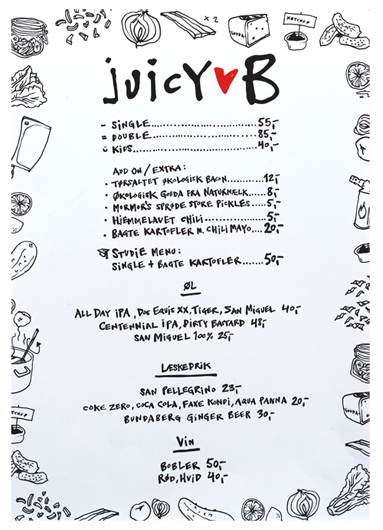 KETCHUP
x 2
GOUDA
JUICY B
- SINGLE 55,-
= DOUBLE 85,-
KIDS 40,-
ADD ON / EXTRA:
• TØRSALTET ØKOLOGISK BACON 12,-
• ØKOLOGISK GOUDA FRA NATURMELK 8,-
• MORMOR'S SPRØDE STORE PICKLES 5,-
• HJEMMELAVET CHILI 5,-
• BAGTE KARTOFLER M. CHILI MAYO 20,-
STUDIE MENU:
SINGLE + BAGTE KARTOFLER 50,-
ØL
ALL DAY IPA, DOS EQUIS XX, TIGER, SAN MIGUEL 40,-
CENTENNIAL IPA, DIRTY BASTARD 48,-
SAN MIGUEL 100% 25,-
LÆSKEDRIK
SAN PELLEGRINO 23,-
COKE ZERO, COCA COLA, FAXE KONDI, AQUA PANNA 20,-
BUNDABERG GINGER BEER 30,-
VIN
BOBLER 50,-
RØD, HVID 40,-